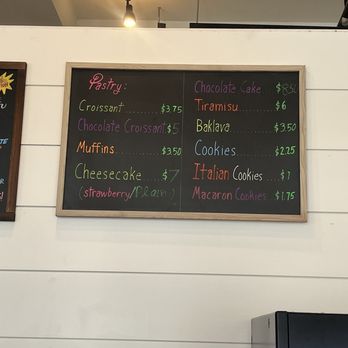 Pastry:
Croissant ..... $3.75
Chocolate Croissant $5
Muffins ..... $3.50
Cheesecake .... $7
(strawberry/Plain)
Chocolate Cake $
Tiramisu ..... $6
Baklava ..... $3.50
Cookies ..... $2.25
Italian Cookies ... $1
Macaron Cookies . $1.75